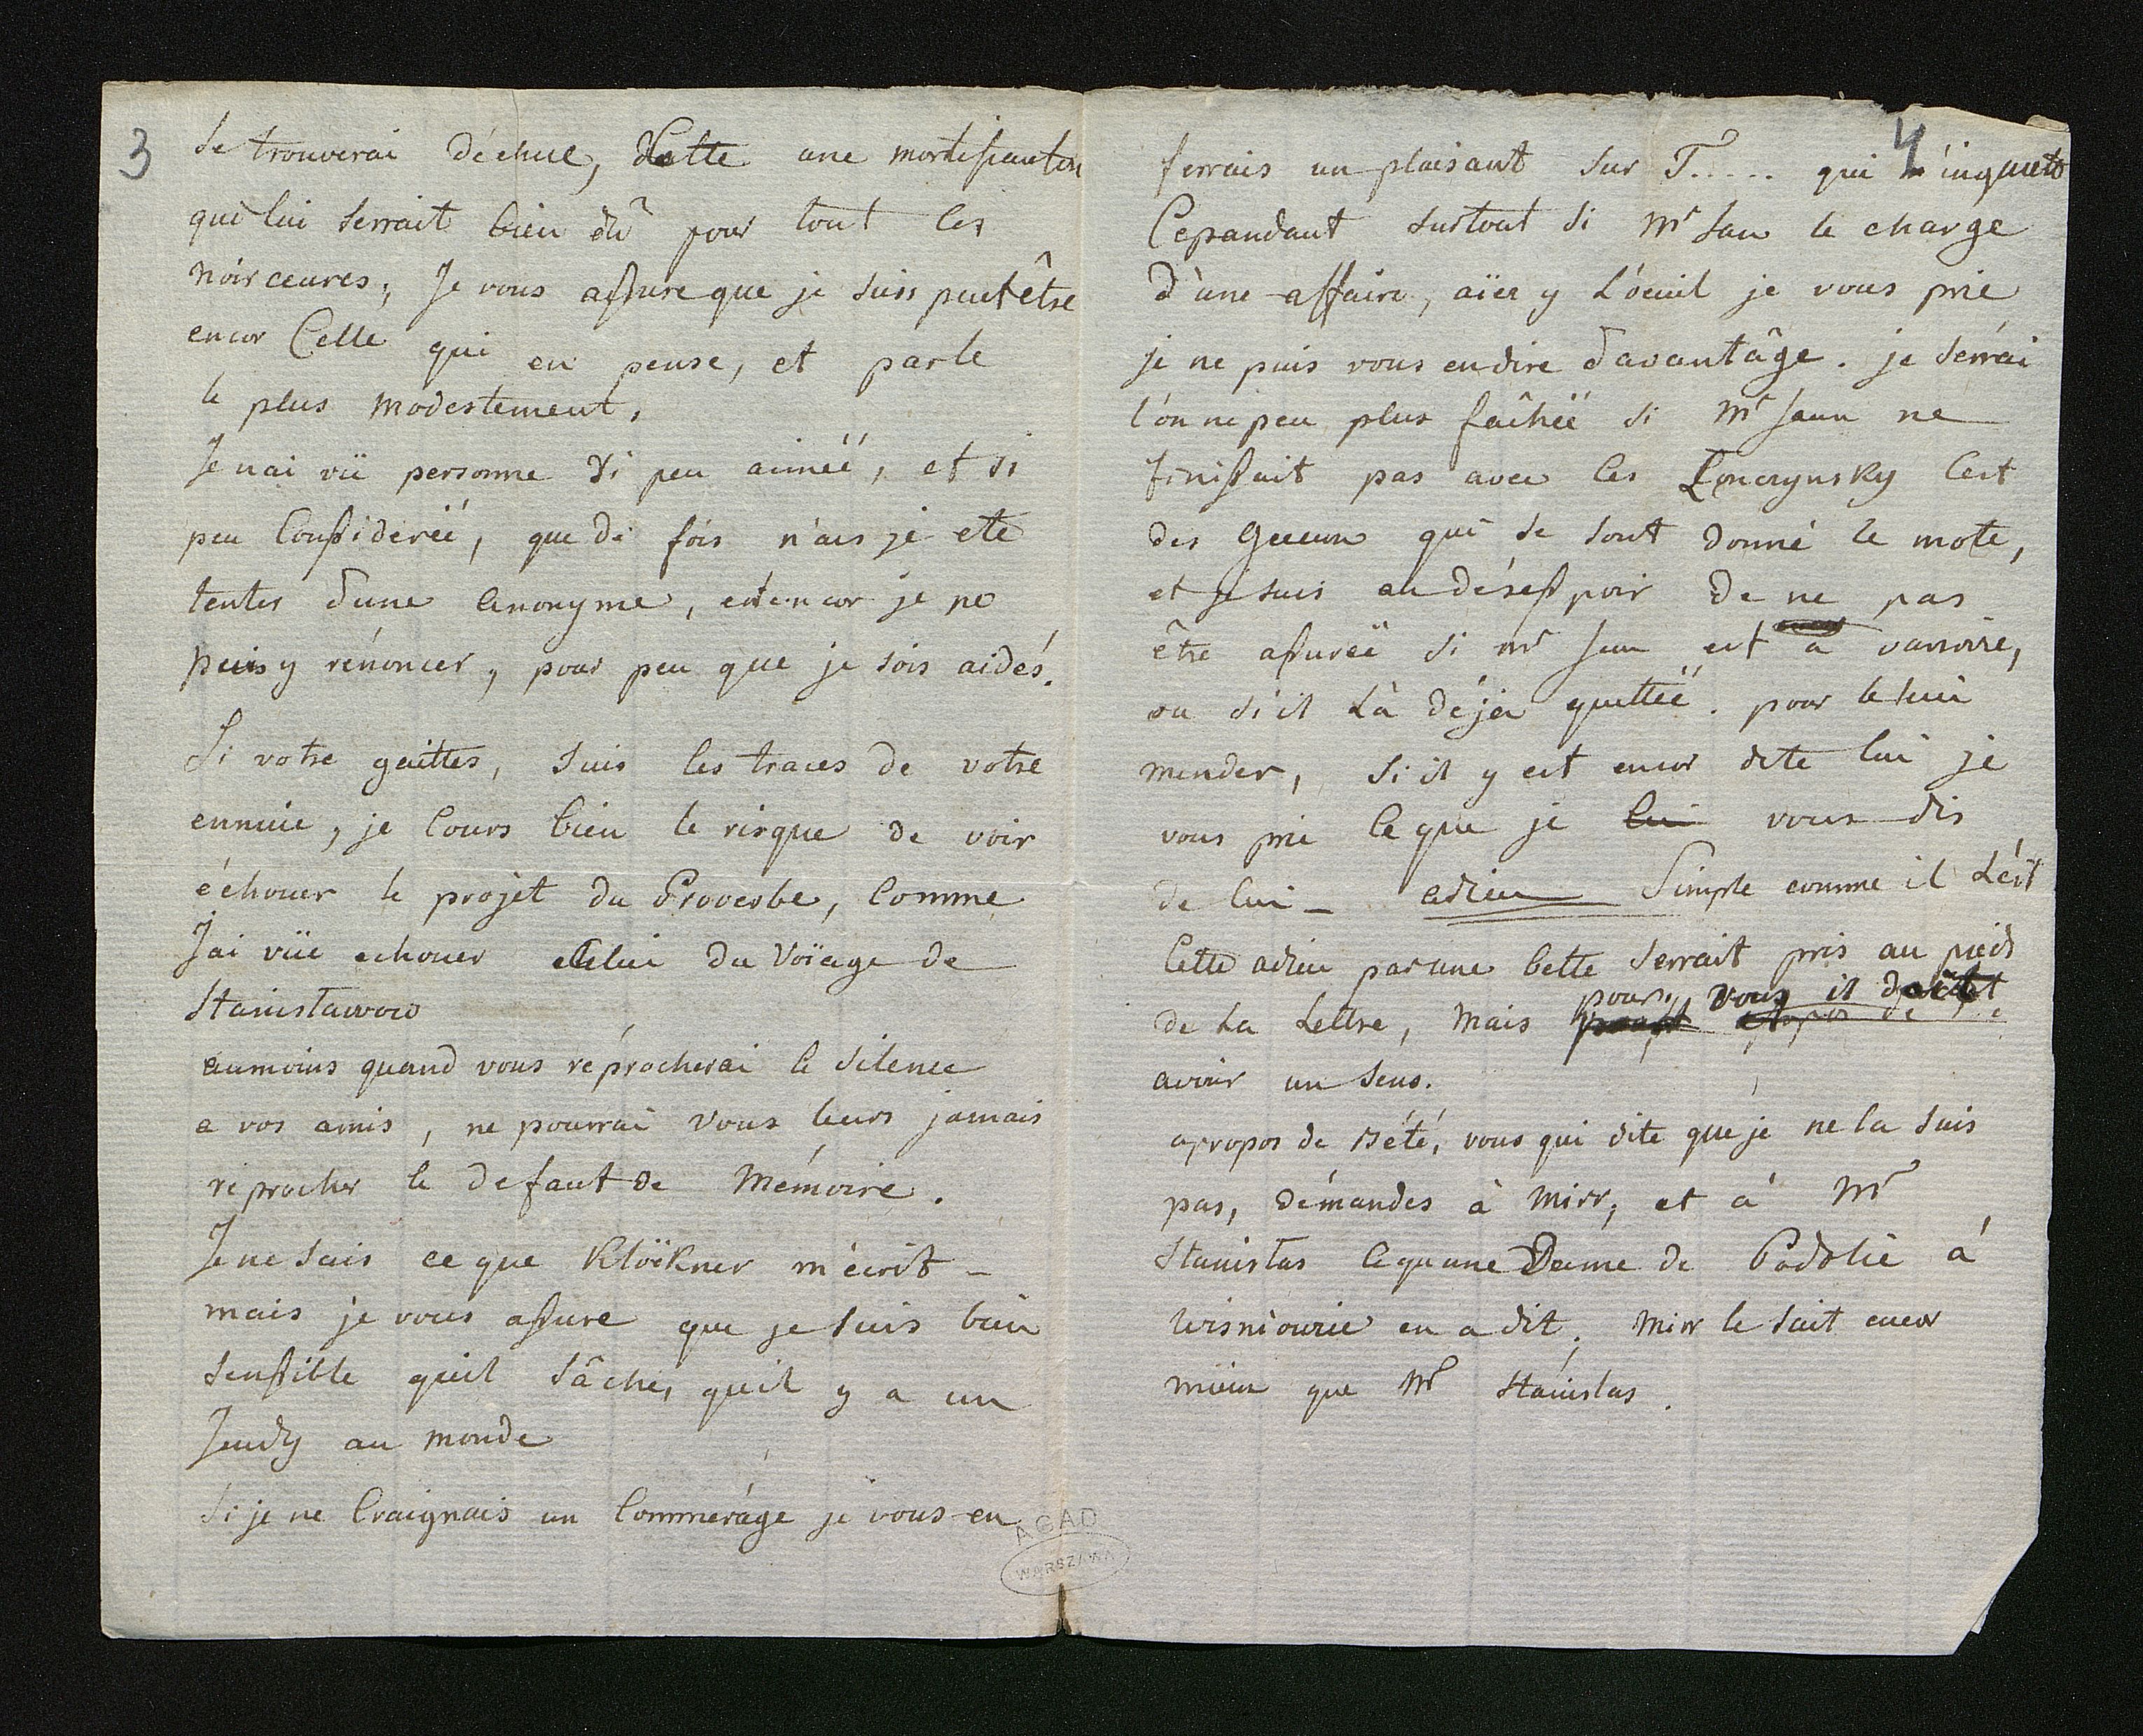 3
se trouverai déchue, Cette une mortification
qui lui serrait bien dû pour tout les
noirceures, Je vous assure que je suis peutêtre
encor Celle qui en pense, et parle
le plus modestement,
Je nai vü personne si peu aiméé, et si
peu Considereé, que de fois n'ais je eté
tenter d'une anonyme, et encor je ne
puis y rénoncer, pour peu que je sois aidés.
Si votre gaittes, suis les traces de votre
ennuie, je Cours bien le risque de voir
échouer le projet du Proverbe, Comme
J'ai vüe echouer Celui du Voïage de
Stanislawow
aumoins quand vous réprocherai le silence
a vos amis, ne pourrai vous leurs jamais
réprocher le defaut de Mémoire.
Je ne sais ce que Klöckner m'écrit -
mais je vous assure que je suis bien
sensible quil sâche, quil y a un
Jeudy au monde
Si je ne Craignais un Commérâge je vous en
4
ferrais un plaisant sur T..... qui m'inquiete
Cependant surtout si Mr Jean le charge
d'une affaire, aïez y L'oeuil je vous prie
je ne puis vous en dire d'avantâge. je serrai
l'on ne peu plus fâchéë si Mr Jean ne
finissait pas avec les Lonczynsky C'est
des gueux qui se sont donné le mote,
et je suis au désespoir de ne pas
être assuréë si mr Jean est à varsovie,
ou s'il L'a déja quittéë. pour le lui
mender, Si il y est encor dite lui je
vous prie Ce que je lui vous dis
de lui - adieu Simple comme il L'est
Cette adieu par une bette serrait pris au pieds
de La Lettre, mais pour vous il doit
apropos de
avoir un sens.
apropos de bété, vous qui dite que je ne la suis
pas, démandes à Mirr, et à Mr
Stanislas Ce qu'une Dame de Podolie à
Wisniowie en a dit, Mirr le sait encor
mieux que Mr Stanislas.
AGAD
WARSZAWA